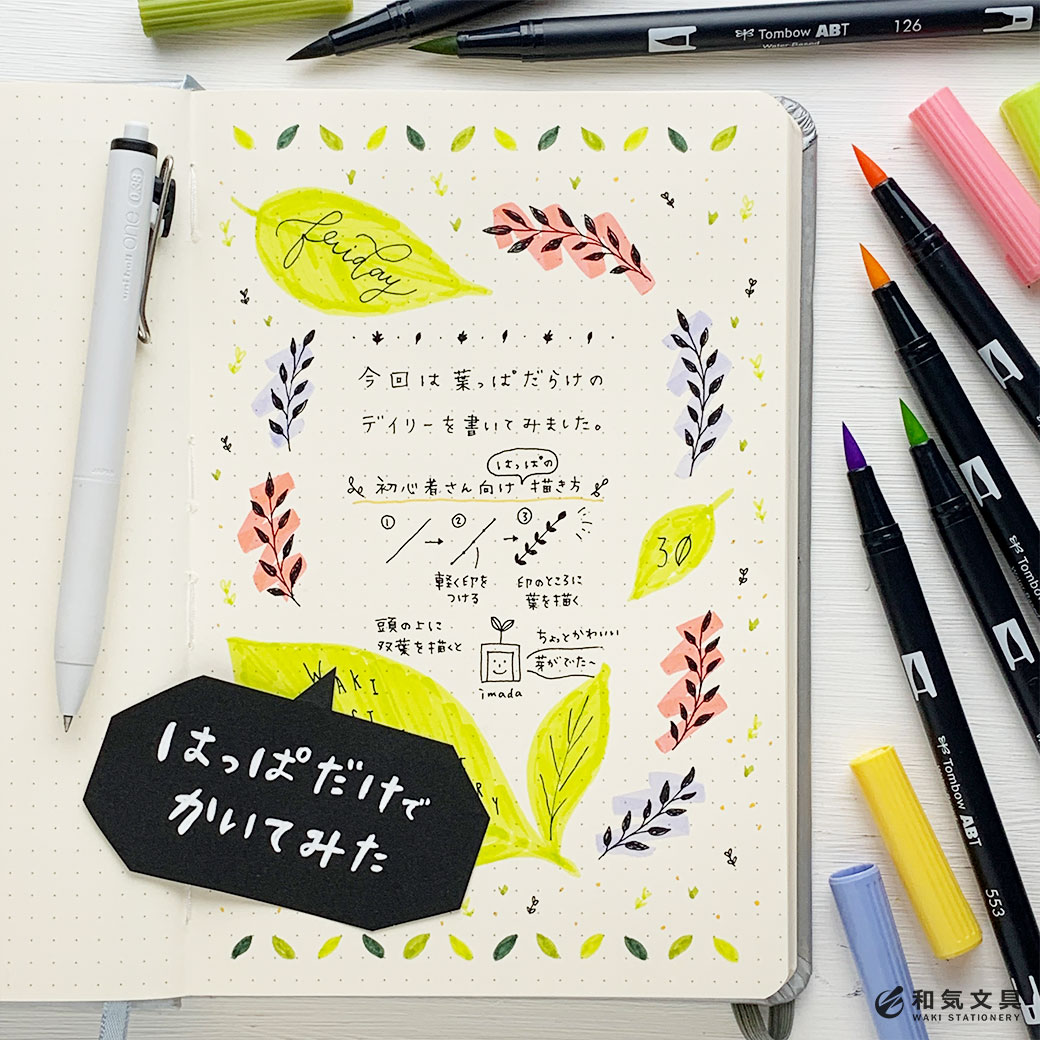 Tombow ABT
Water-Based
126
friday
今回は葉っぱだらけの
デイリーを書いてみました。
はっぱの
初心者さん向け描き方
① ② ③
軽く印を
つける
印のところに
葉を描く
30
頭の上に
双葉を描くと
ちょっとかわいい
芽がでた〜
imada
WAKI
ST
RY
はっぱだけで
かいてみた
uniball one 0.38
Tombow
Tombow ABT
553
和気文具
WAKI STATIONERY